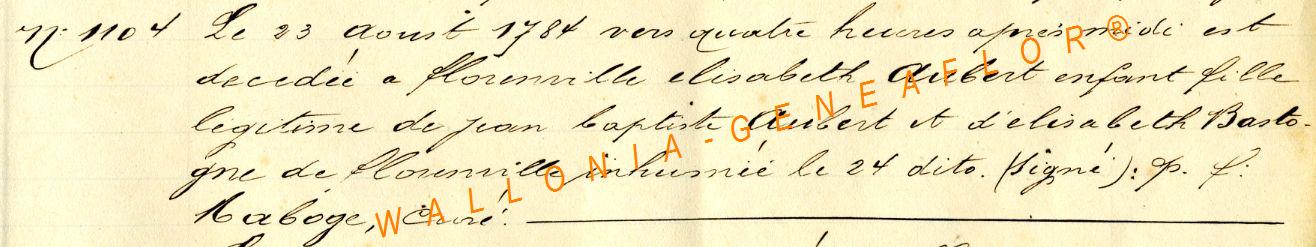 N° 1104 Le 23 aoust 1784 vers quatre heures après midi est
decedée a florenville elisabeth Aubert enfant fille
légitime de jean baptiste Aubert et d'elisabeth Basto-
gne de florenville inhumée le 24 dito. (signé): p. f.
Maboge, Curé.
WALLONIA-GENEAFLOR®